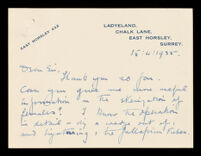 EAST HORSLEY 432
LADYELAND,
CHALK LANE,
EAST HORSLEY,
SURREY.
15/4/1935.
Dear Sir,
Thank you so far.
Can you give me more useful
information on the sterilization of
females? I know the operation
in detail - by a wedge cut of,
and ligaturing, the Fallopian tubes.